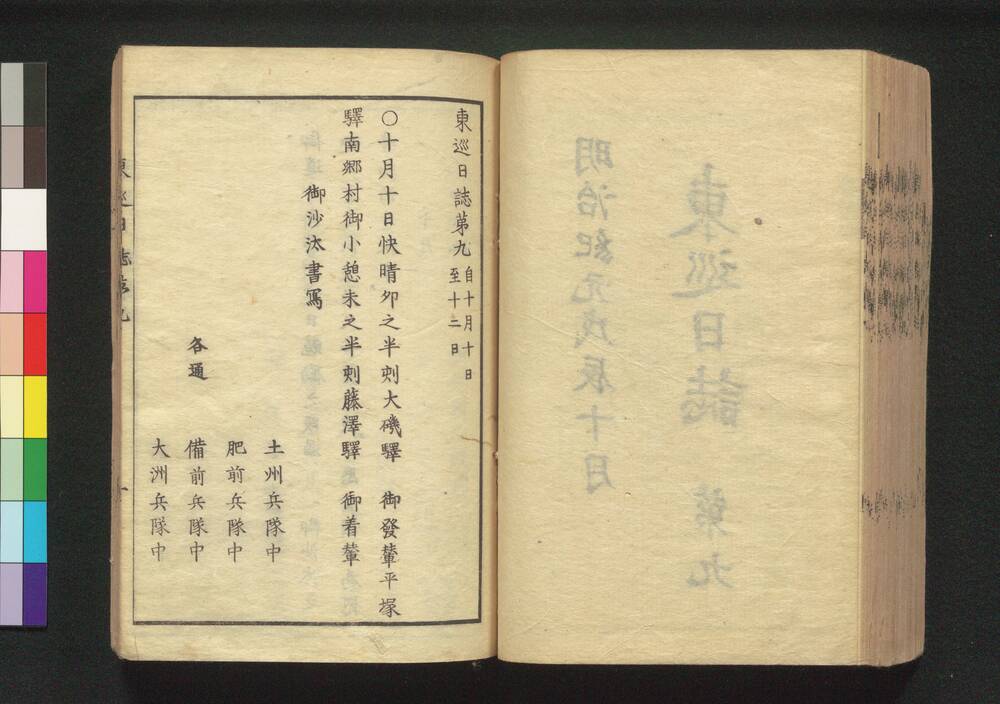 東巡日誌第九 自十月十日
至十二日
○十月十日快晴卯之半刻大磯驛 御發輦平塚
驛南郷村御小憩未之半刻藤澤驛 御着輦
御沙汰書寫
土州兵隊中
肥前兵隊中
各通 備前兵隊中
大洲兵隊中
東巡日誌第九 一
東巡日誌 第九
明治紀元戊辰十月